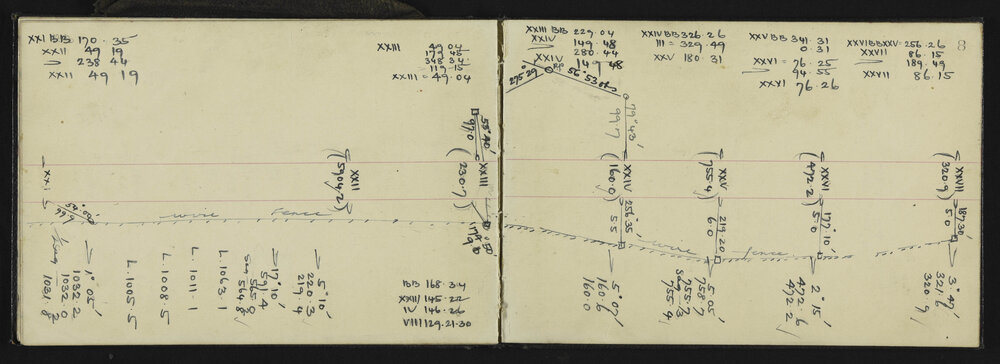 XXI BB 170.35
XXII 49 19
238 44
XXII 49 19
XXIII 49.04
348.34
119.15
XXIII = 49.04
XXIII BB 229.04
XXIV 149.48
280.44
XXIV 149 48
XXIV BB 326.26
III = 329.49
XXV 180.31
XXV BB 341.31
0.31
XXVI = 76.25
94.55
XXVI 76.26
XXVI BB XXV - 256.26
XXVII 86.15
189.49
XXVII 86.15
8
275°29
RP
56°53
79°43'
99.7
53°40'
97.0
XXI
99.9
wire fence
XXII
(590.4.2)
XXIII
(230.7)
XXIV
(160.0)
256°35'
5.5
XXV
(755.4)
219.20
6.0
XXVI
(472.2)
177°10'
5.0
XXVII
(320.9)
187.30'
5.0
wire fence
1°05'
1032.2
1032.0
1031.8
L.1005.5
L.1008.5
L.1011.1
L.1063.1
17°10'
591.4
565.8
564.8
5°10'
220.3
219.4
BB 168.34
XXIII 145.22
IV 146.26
VIII 129.21.30
5°07'
160.6
160.0
5°05'
758.7
755.7
755.4
2°15'
472.6
472.2
3°47'
321.6
320.9